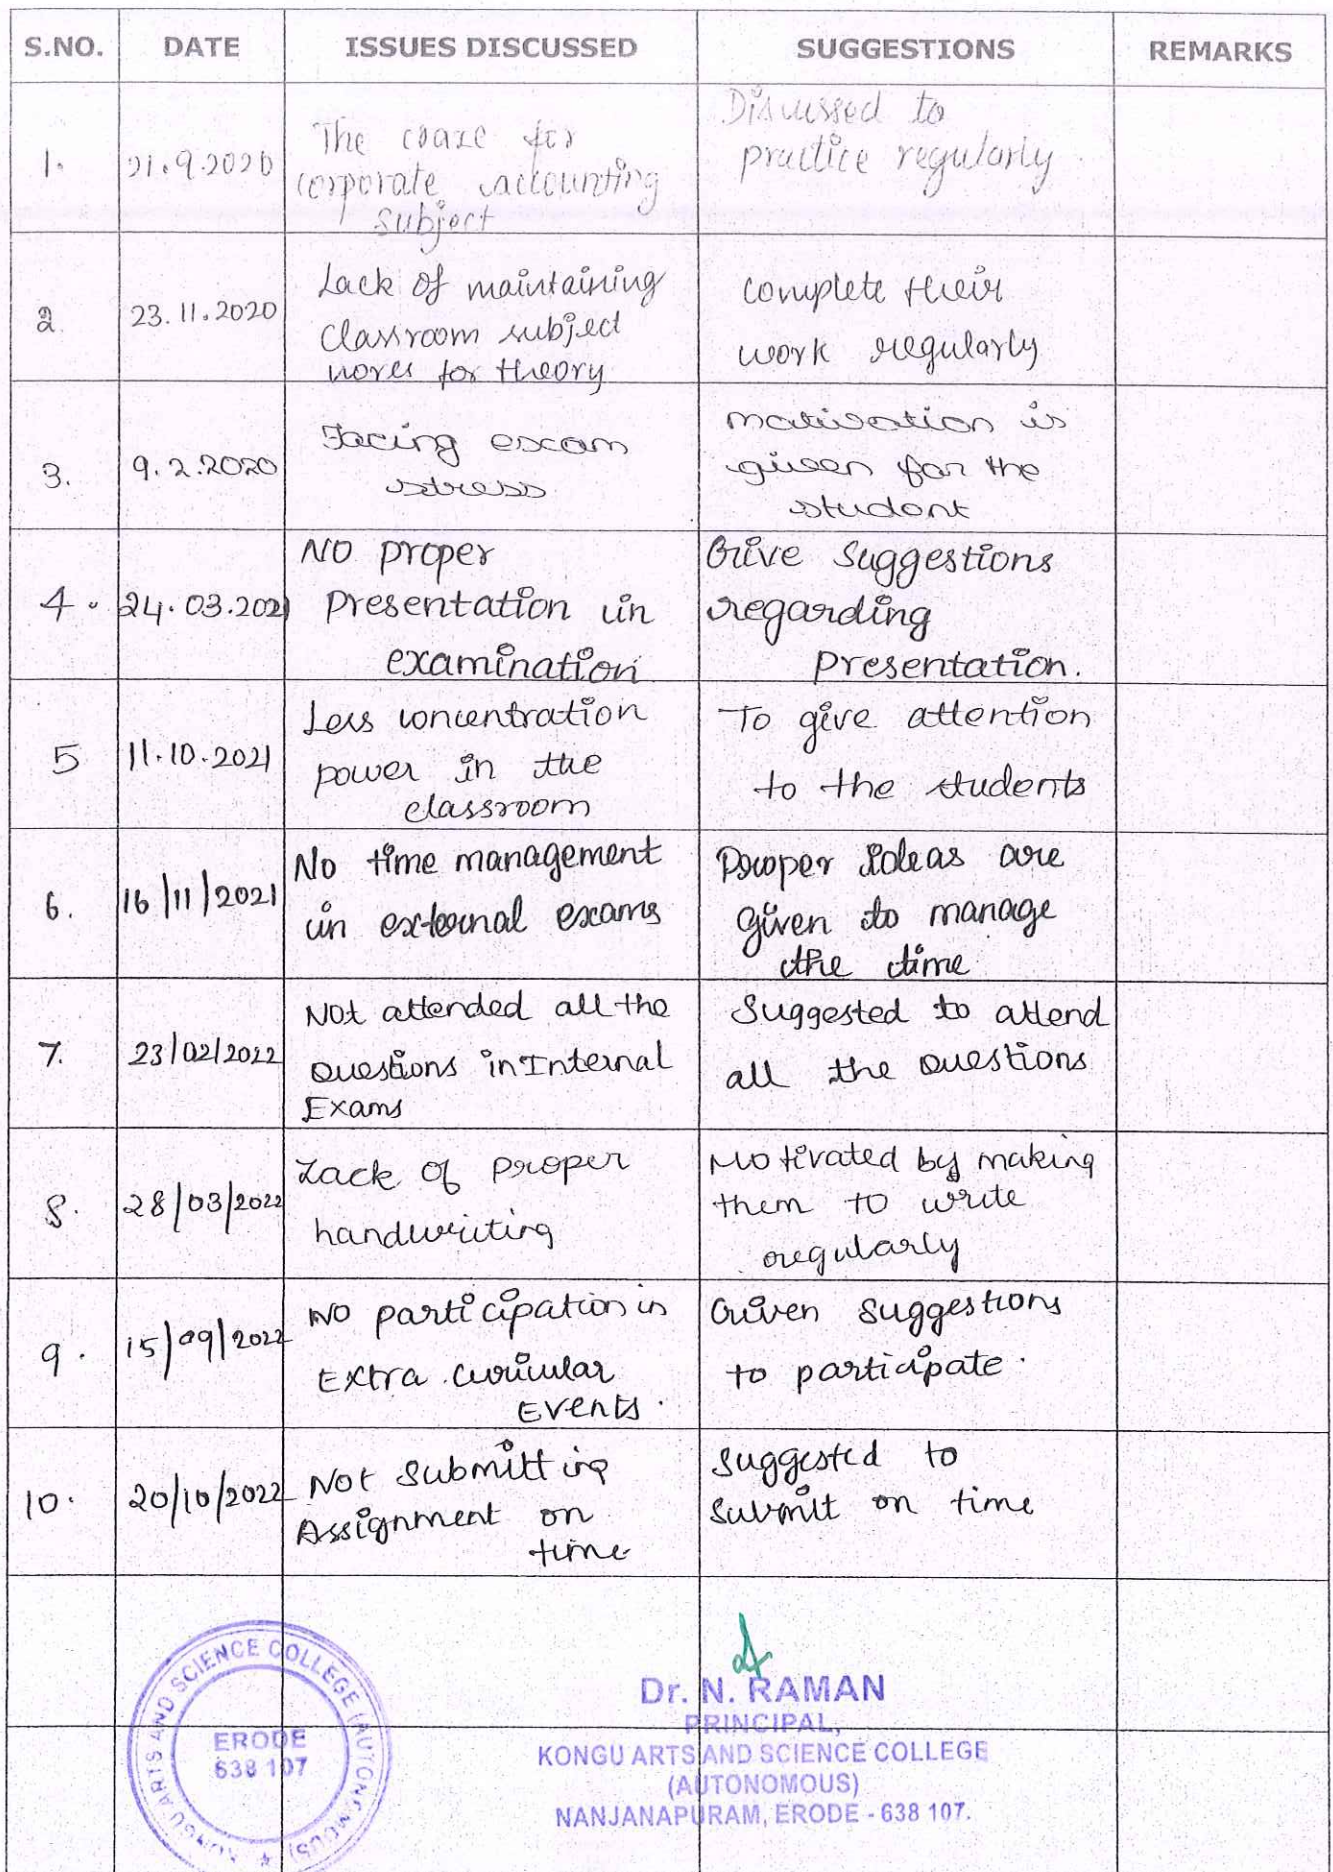 S.NO. DATE ISSUES DISCUSSED SUGGESTIONS REMARKS
1. 21.9.2020
The craze for
corporate accounting
subject
Discussed to
practice regularly.
2. 23.11.2020
Lack of maintaining
classroom subject
notes for theory
complete their
work regularly
3. 9.2.2020
Facing exam
stress
motivation is
given for the
student
4. 24.03.2021
NO proper
Presentation in
examination
Give Suggestions
regarding
Presentation.
5 11.10.2021
Less concentration
power in the
classroom
To give attention
to the students
6. 16/11/2021
No time management
in external exams
Proper ideas are
given to manage
the time
7. 23/02/2022
Not attended all the
Questions in Internal
Exams
Suggested to attend
all the Questions
8. 28/03/2022
Lack of proper
handwriting
Motivated by making
them to write
regularly
9. 15/09/2022
NO participation in
Extra curricular
Events.
Given Suggestions
to participate.
10. 20/10/2022
Not Submitting
Assignment on
time
Suggested to
Submit on time
KONGU ARTS AND SCIENCE COLLEGE (AUTONOMOUS)
ERODE
638 107
Dr. N. RAMAN
PRINCIPAL,
KONGU ARTS AND SCIENCE COLLEGE
(AUTONOMOUS)
NANJANAPURAM, ERODE - 638 107.